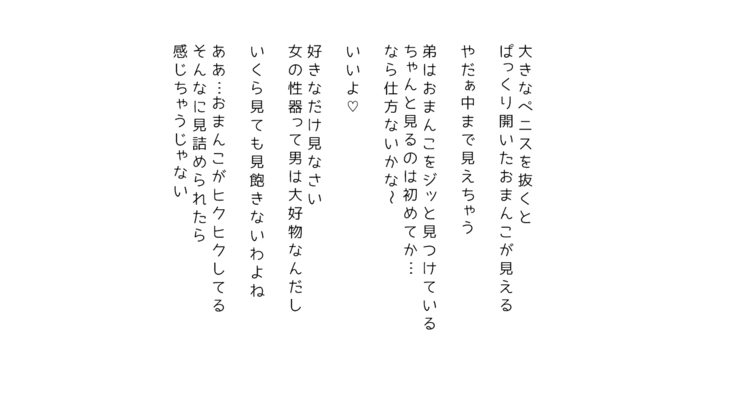 大きなペニスを抜くと
ぱっくり開いたおまんこが見える
やだぁ中まで見えちゃう
弟はおまんこをジッと見つけている
ちゃんと見るのは初めてか…
なら仕方ないかな～
いいよ♡
好きなだけ見なさい
女の性器って男は大好物なんだし
いくら見ても見飽きないわよね
ああ…おまんこがヒクヒクしてる
そんなに見詰められたら
感じちゃうじゃない